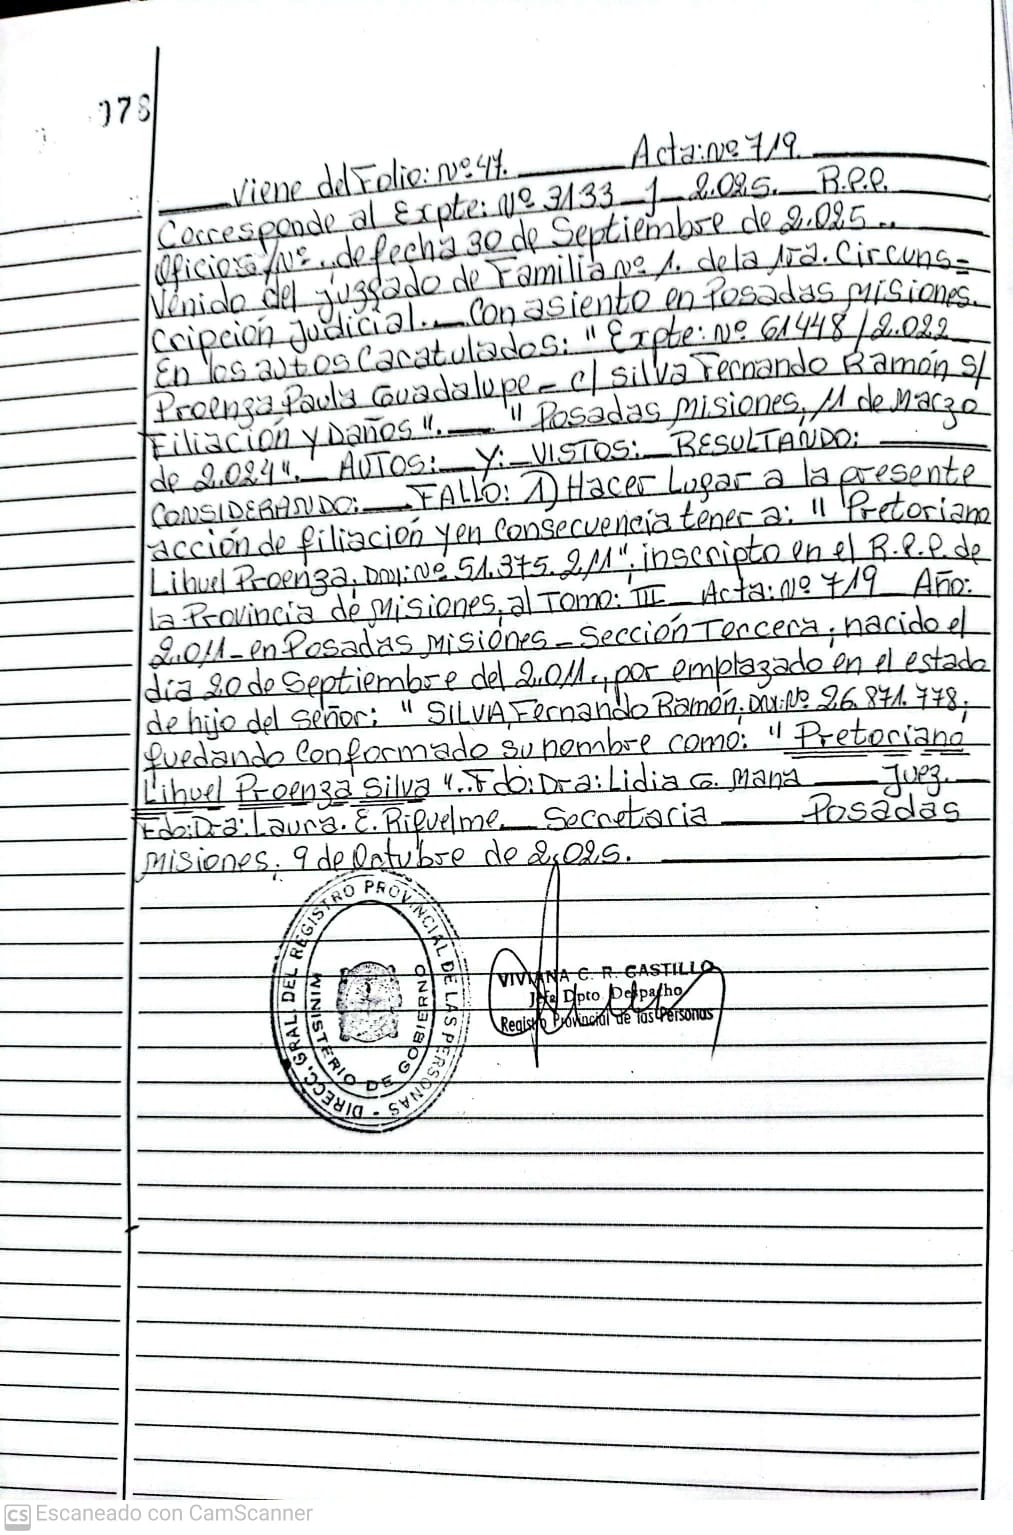 078
Viene del Folio: Nº 47. Acta: nº 719.
Corresponde al Expte: Nº 3133 - J - 2.025. R.P.P.
Oficio: s/Nº.. de fecha 30 de Septiembre de 2.025..
Venido del Juzgado de Familia nº 1. de la 1ra. Circuns=
cripción Judicial. Con asiento en Posadas Misiones.
En los autos Caratulados: "Expte: nº 61448/2.022
Proenza Paula Guadalupe - c/ Silva Fernando Ramón s/
Filiación y Daños". "Posadas Misiones, 11 de Marzo
de 2.024". AUTOS: Y: VISTOS: RESULTANDO:
CONSIDERANDO: FALLO: 1) Hacer Lugar a la presente
acción de filiación y en consecuencia tener a: "Pretoriano
Lihuel Proenza, DNI: Nº 51.375.211", inscripto en el R.P.P. de
la Provincia de Misiones, al Tomo: III Acta: Nº 719 Año:
2.011 - en Posadas Misiones - Sección Tercera; nacido el
día 20 de Septiembre del 2.011., por emplazado en el estado
de hijo del señor: "SILVA, Fernando Ramón, DNI: Nº 26.871.778;
quedando Conformado su nombre como: "Pretoriano
Lihuel Proenza Silva".. Fdo: Dra: Lidia G. Mana Juez.
Fdo: Dra: Laura. E. Riquelme. Secretaria Posadas
Misiones, 9 de Octubre de 2.025.
DIRECC. GRAL. DEL REGISTRO PROVINCIAL DE LAS PERSONAS -
MINISTERIO DE GOBIERNO
VIVIANA G. R. CASTILLO
Jefa Dpto Despacho
Registro Provincial de las Personas
CS Escaneado con CamScanner